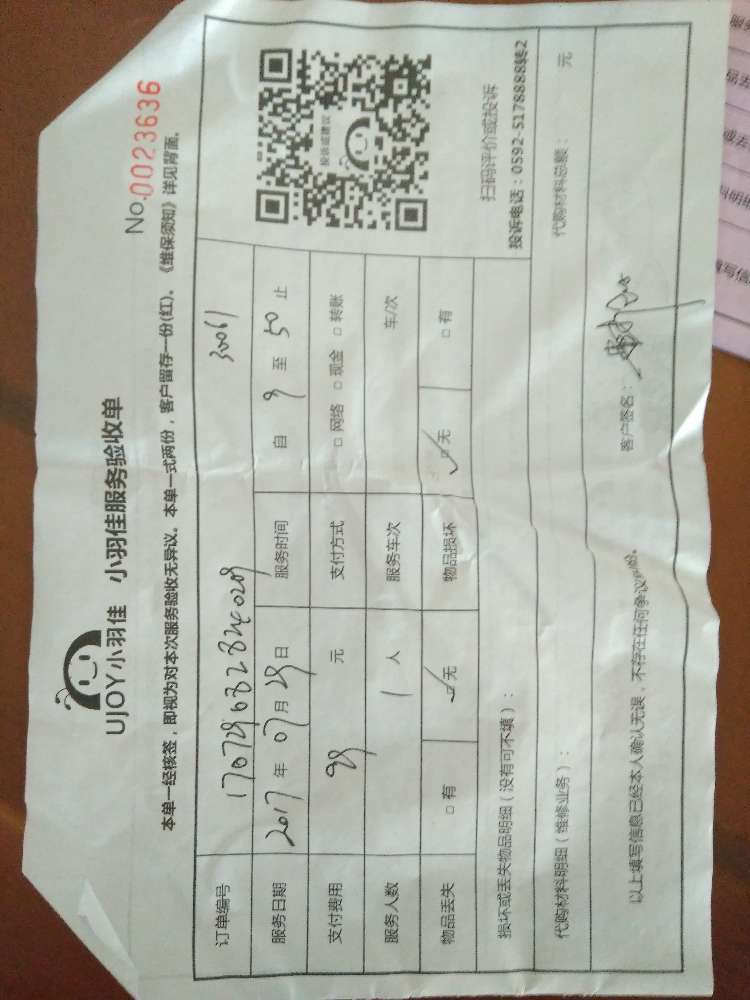 UJOY小羽佳 小羽佳服务验收单
No.0023636
本单一经核签，即视为对本次服务验收无异议。本单一式两份，客户留存一份(红)。《维保须知》详见背面。
订单编号 30061
服务日期 2017 年 07 月 29 日 服务时间 自 9 至 50 止
支付费用 元 支付方式 □ 网络 □ 现金 □ 转账
服务人数 1 人 服务车次 车/次
物品丢失 □ 有 □ 无 物品损坏 □ 无 □ 有
投诉或建议
扫码评价或投诉
投诉电话：0592-5178888转2
损坏或丢失物品明细（没有可不填）：
代购材料明细（维修业务）： 代购材料总额： 元
以上填写信息已经本人确认无误，不存在任何争议
客户签名：